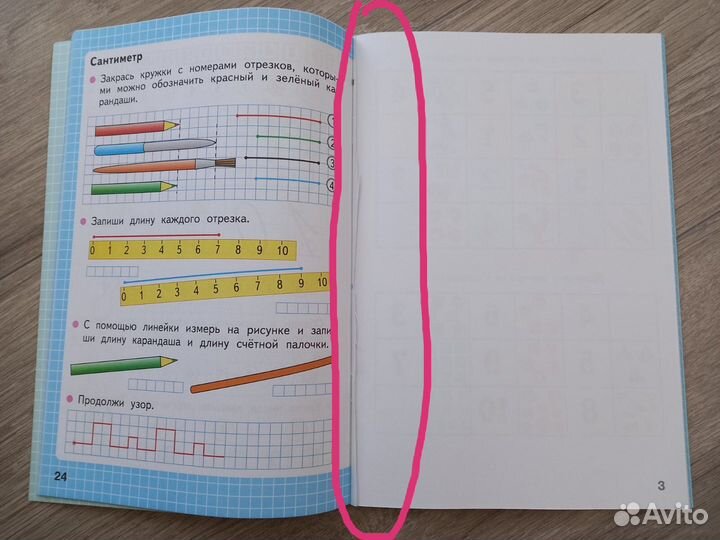 Сантиметр
Закрась кружки с номерами отрезков, которы-
ми можно обозначить красный и зелёный ка-
рандаши.
1
2
3
4
Запиши длину каждого отрезка.
0 1 2 3 4 5 6 7 8 9 10
0 1 2 3 4 5 6 7 8 9 10
С помощью линейки измерь на рисунке и запи-
ши длину карандаша и длину счётной палочки.
Продолжи узор.
24
3
Avito